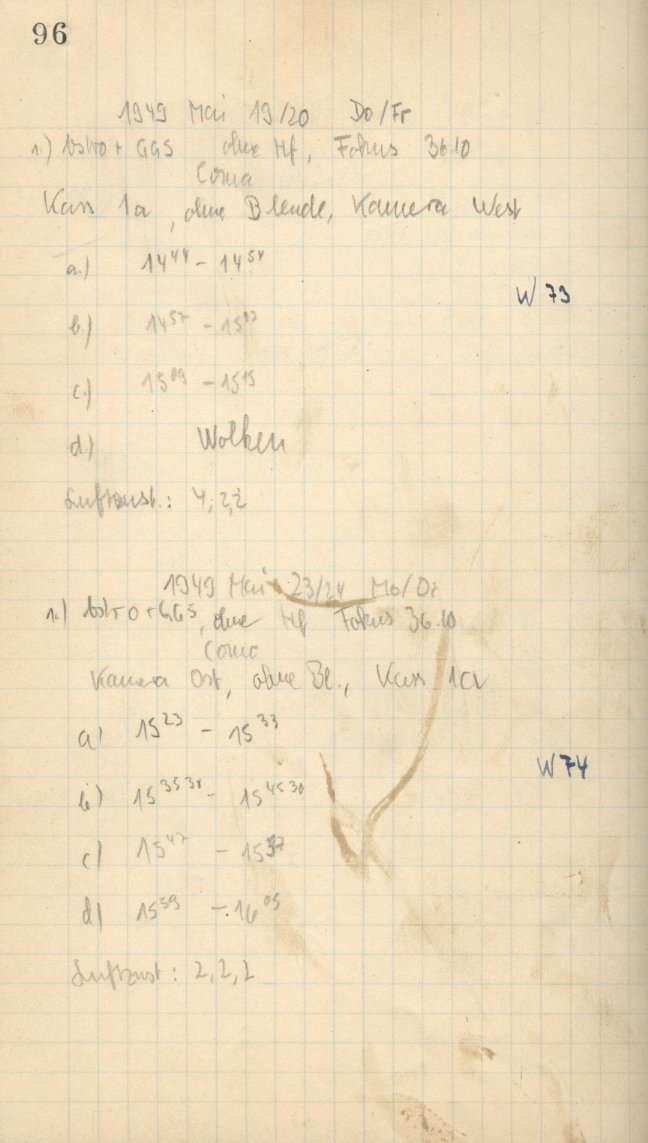 96
1949 Mai 19/20 Do/Fr
1.) Astro + GGS ohne Hf, Fokus 36.10
Coma
Kass 1a, ohne Blende, Kamera West
a.) 14⁴⁴ - 14⁵⁴
W 73
b.) 14⁵⁷ - 15⁰³
c.) 15⁰⁹ - 15¹⁵
d) Wolken
Luftzust.: 4, 2, 2
1949 Mai 23/24 Mo/Di
1.) Astro + GGS, ohne Hf Fokus 36.10
Coma
Kamera Ost, ohne Bl., Kass 1a
a) 15²³ - 15³³
W 74
b) 15³⁵ ³⁰ - 15⁴⁵ ³⁰
c) 15⁴⁷ - 15⁵⁷
d) 15⁵⁹ - 16⁰⁵
Luftzust: 2, 2, 2